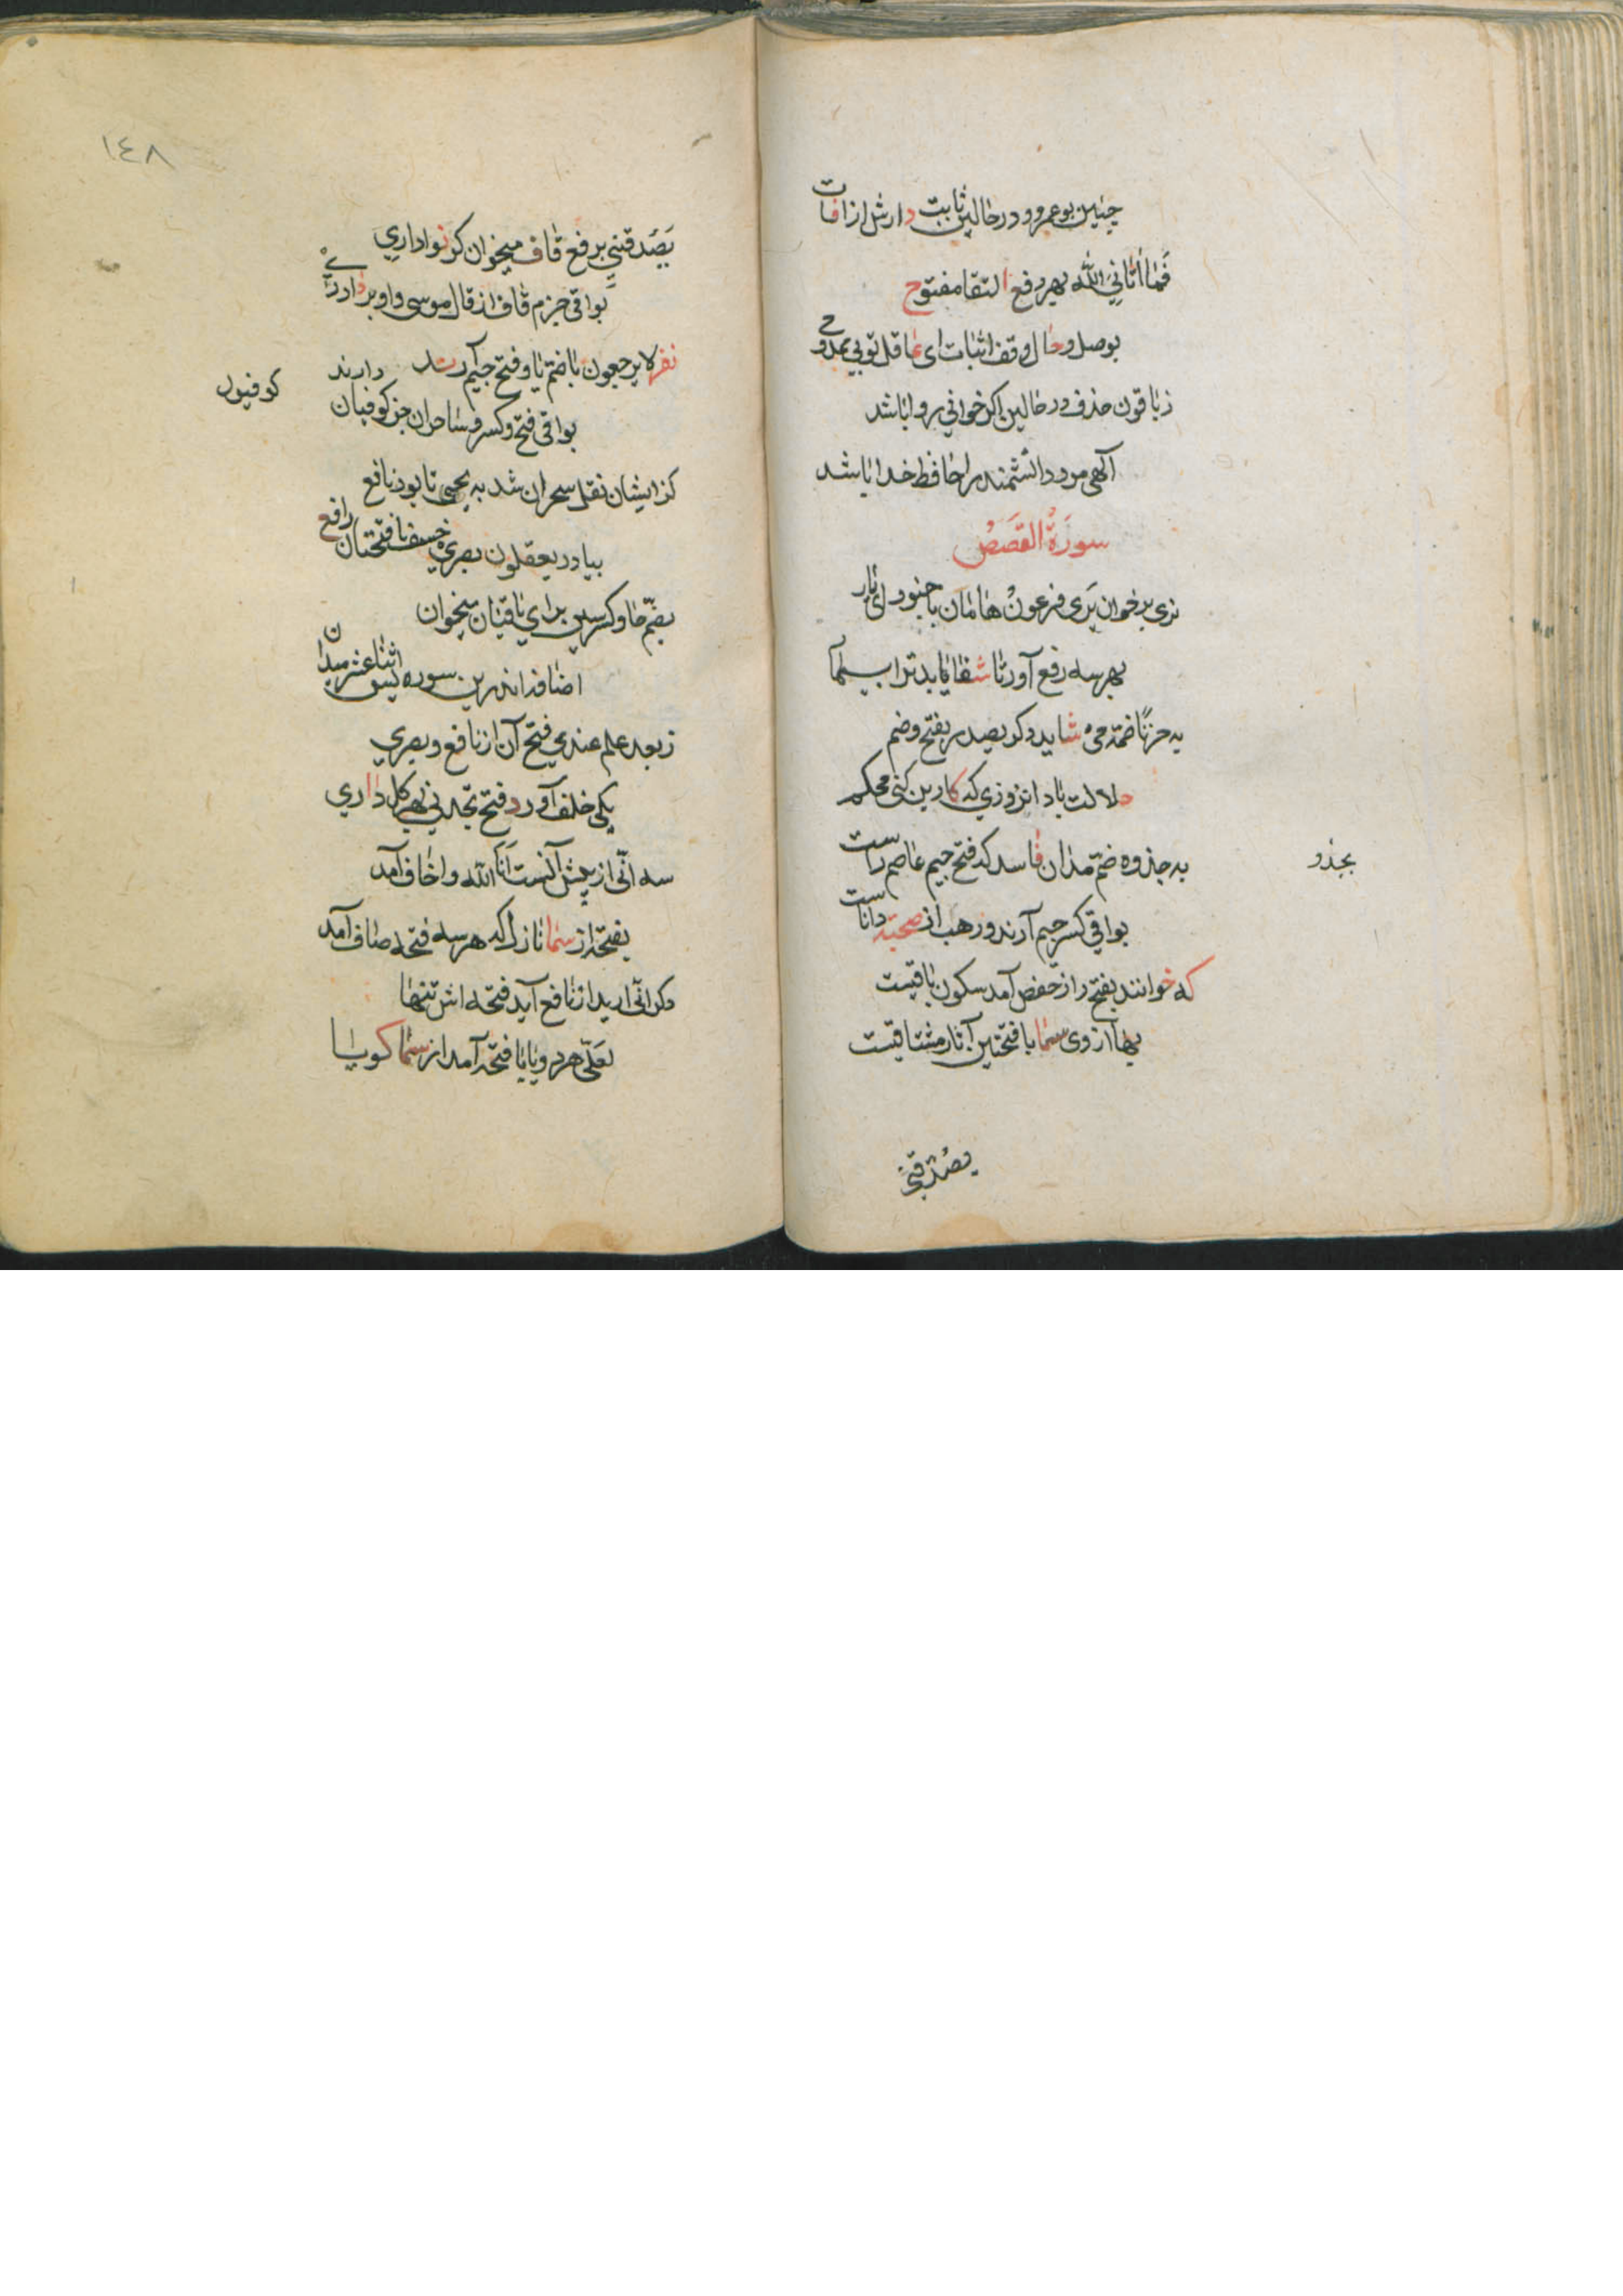 چنین بوعمرو و در حالین ثابت دارش از افات
فَمَا أتَانِيَ الله بهر دفع التقا مفتوح
بوصل و حال وقف اثبات ای عاقل تویی ممدوح
ز باقون حذف در حالین اکر خوانی روا باشد
آلهی مرد دانشمند را حافظ خدا باشد
سُورَةُ القَصَصْ
نری برخوان یَرَی فرعونُ هامان با جنود ای یار
بهر سه رفع آور تا شفا یابد ترا بیمار
به حزنًا ضمّه می شاید دکر یصدر بفتح و ضم
حلالت باد انروزی که کار دین کنی محکم
به جذوه ضمّ مدان فاسد که فتح جیم عاصم راست
بجذو
بواقی کسر جیم آرند و رهب از صحبته داناست
که خوانند بفتح را ز حفص آمد سکون باقیست
بها از وی سما با فتحتین آثار مشتاقیست
یصدقنی
١٤٨
یَصَدقنی برفع قاف میخوان کر نوا داری
بواقی جزم قاف از قال موسی واو بردارے
نفر لا یرجعون با ضمّ یا و فتح جیم آرشد دارند
بواقی فتح و کسر و ساحران جز کوفیان
کوفیون
کزایشان نقل سحران شد به یجبی تا بود نافع
بیا در یعقلون بصری خسفنا فتحتان رافع
بضمّ خا و کسر سین برای باقیان میخوان
اضافه اندرین سوره یس اثنا عشر میدان
ز بعد علم عندی فتح آن از نافع و بصری
یکی خلف آورد فتح تجدنی بهر کل داری
سه انّی از پیش آنست اَنَا الله و اخاف آمد
بفتحه از سما نازل که هر سه فتحه صاف آمد
دکر انّی ارید از نافع آید فتحه اش تنها
لعلّی هر دو یا با فتحه آمد از سما کویا